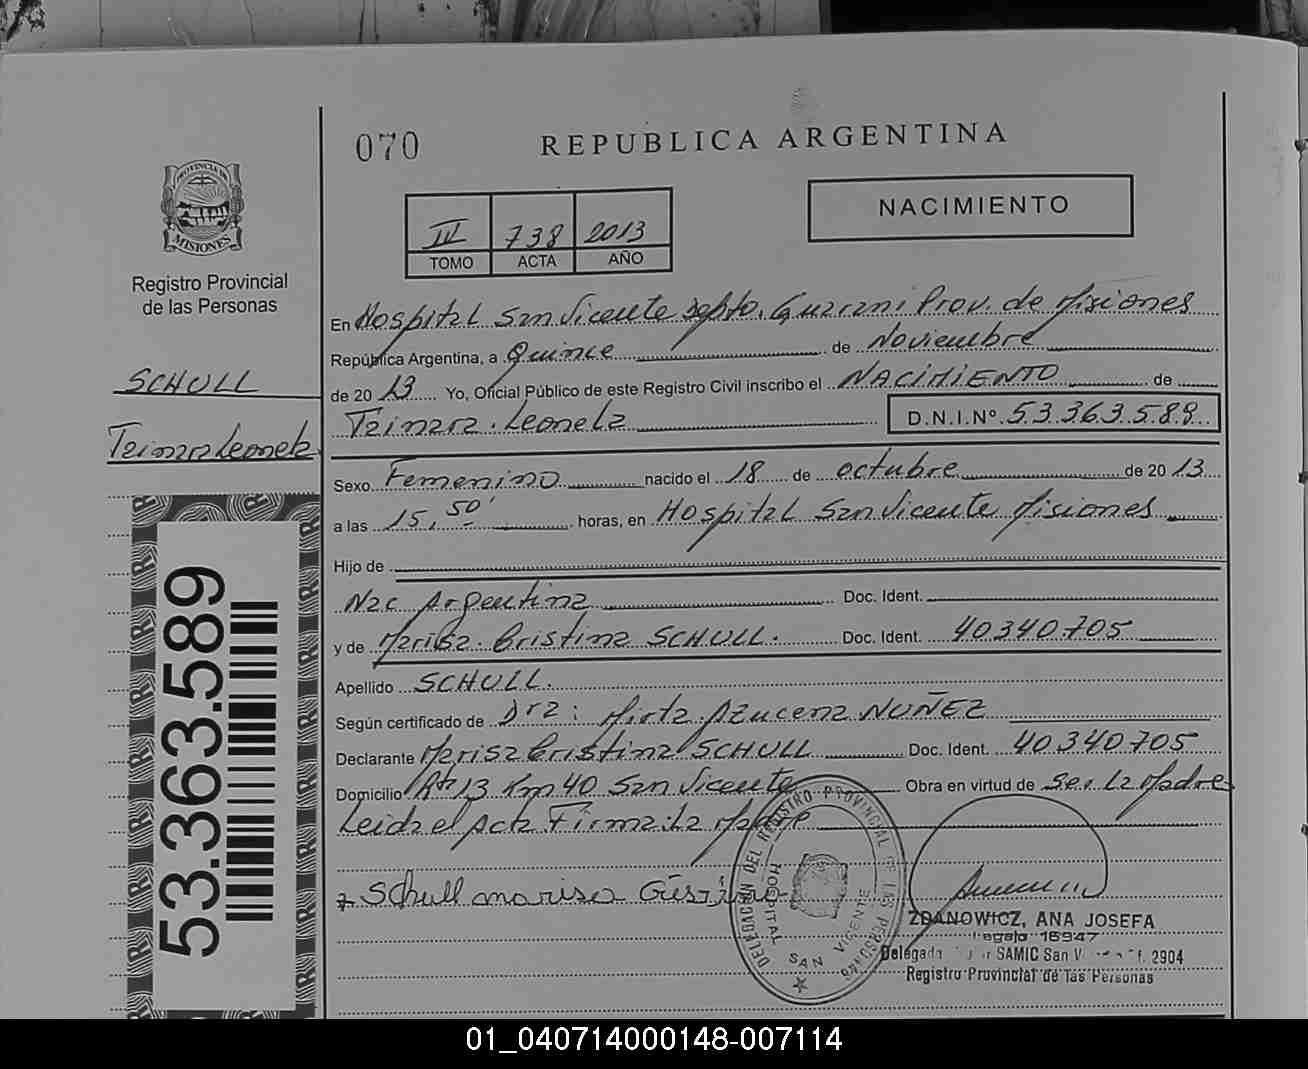 070
REPUBLICA ARGENTINA
PROVINCIA DE
MISIONES
Registro Provincial
de las Personas
IV 738 2013
TOMO ACTA AÑO
NACIMIENTO
En Hospital San Vicente Depto. Guarani Prov. de Misiones
República Argentina, a Quince de Noviembre
de 20 13 Yo, Oficial Público de este Registro Civil inscribo el NACIMIENTO de
Tainara Leonela D.N.I.Nº 53.363.589
SCHULL
Tainara Leonela
Sexo Femenino nacido el 18 de octubre de 20 13
a las 15,50' horas, en Hospital San Vicente Misiones
Hijo de
Nac Argentina Doc. Ident.
y de Marisa Cristina SCHULL. Doc. Ident. 40340705
Apellido SCHULL.
Según certificado de Dra: Mirta Azucena NUÑEZ
Declarante Marisa Cristina SCHULL Doc. Ident. 40340705
Domicilio Rta 13 Km 40 San Vicente Obra en virtud de Ser La Madre
Leida el Acta Firma: La Madre
Schull marisa
53.363.589
DELEGACION DEL REGISTRO PROVINCIAL DE LAS PERSONAS
HOSPITAL SAN VICENTE
ZDANOWICZ, ANA JOSEFA
Legajo 16947
SAMIC San 2904
Registro Provincial de las Personas
01_040714000148-007114